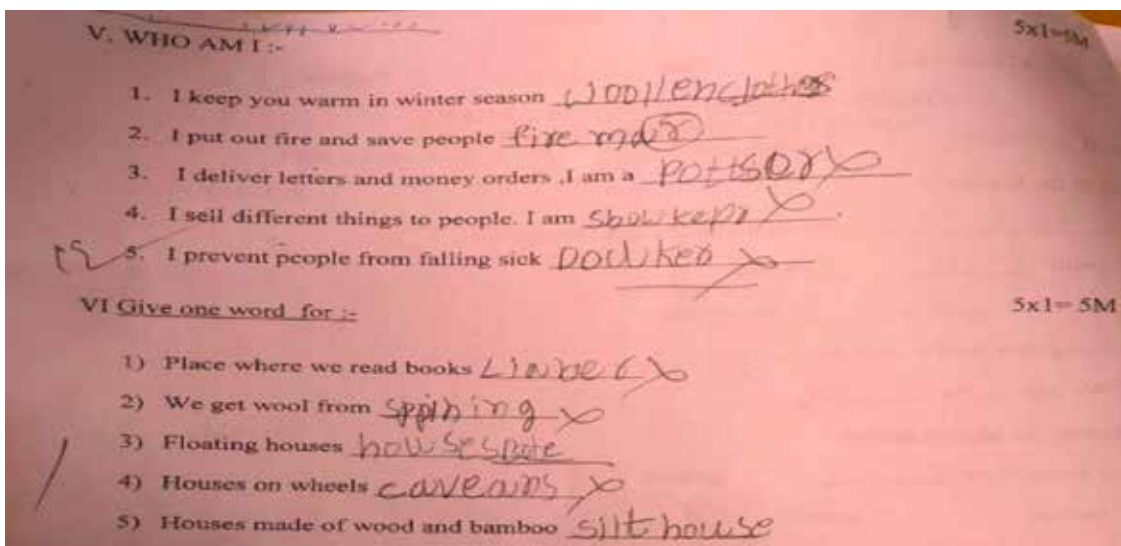 V. WHO AM I :- 5x1=5M
1. I keep you warm in winter season woollenclothes
2. I put out fire and save people fire
3. I deliver letters and money orders ,I am a Pottsor
4. I sell different things to people. I am
5. I prevent people from falling sick
VI Give one word for :- 5x1= 5M
1) Place where we read books
2) We get wool from
3) Floating houses
4) Houses on wheels
5) Houses made of wood and bamboo silt house